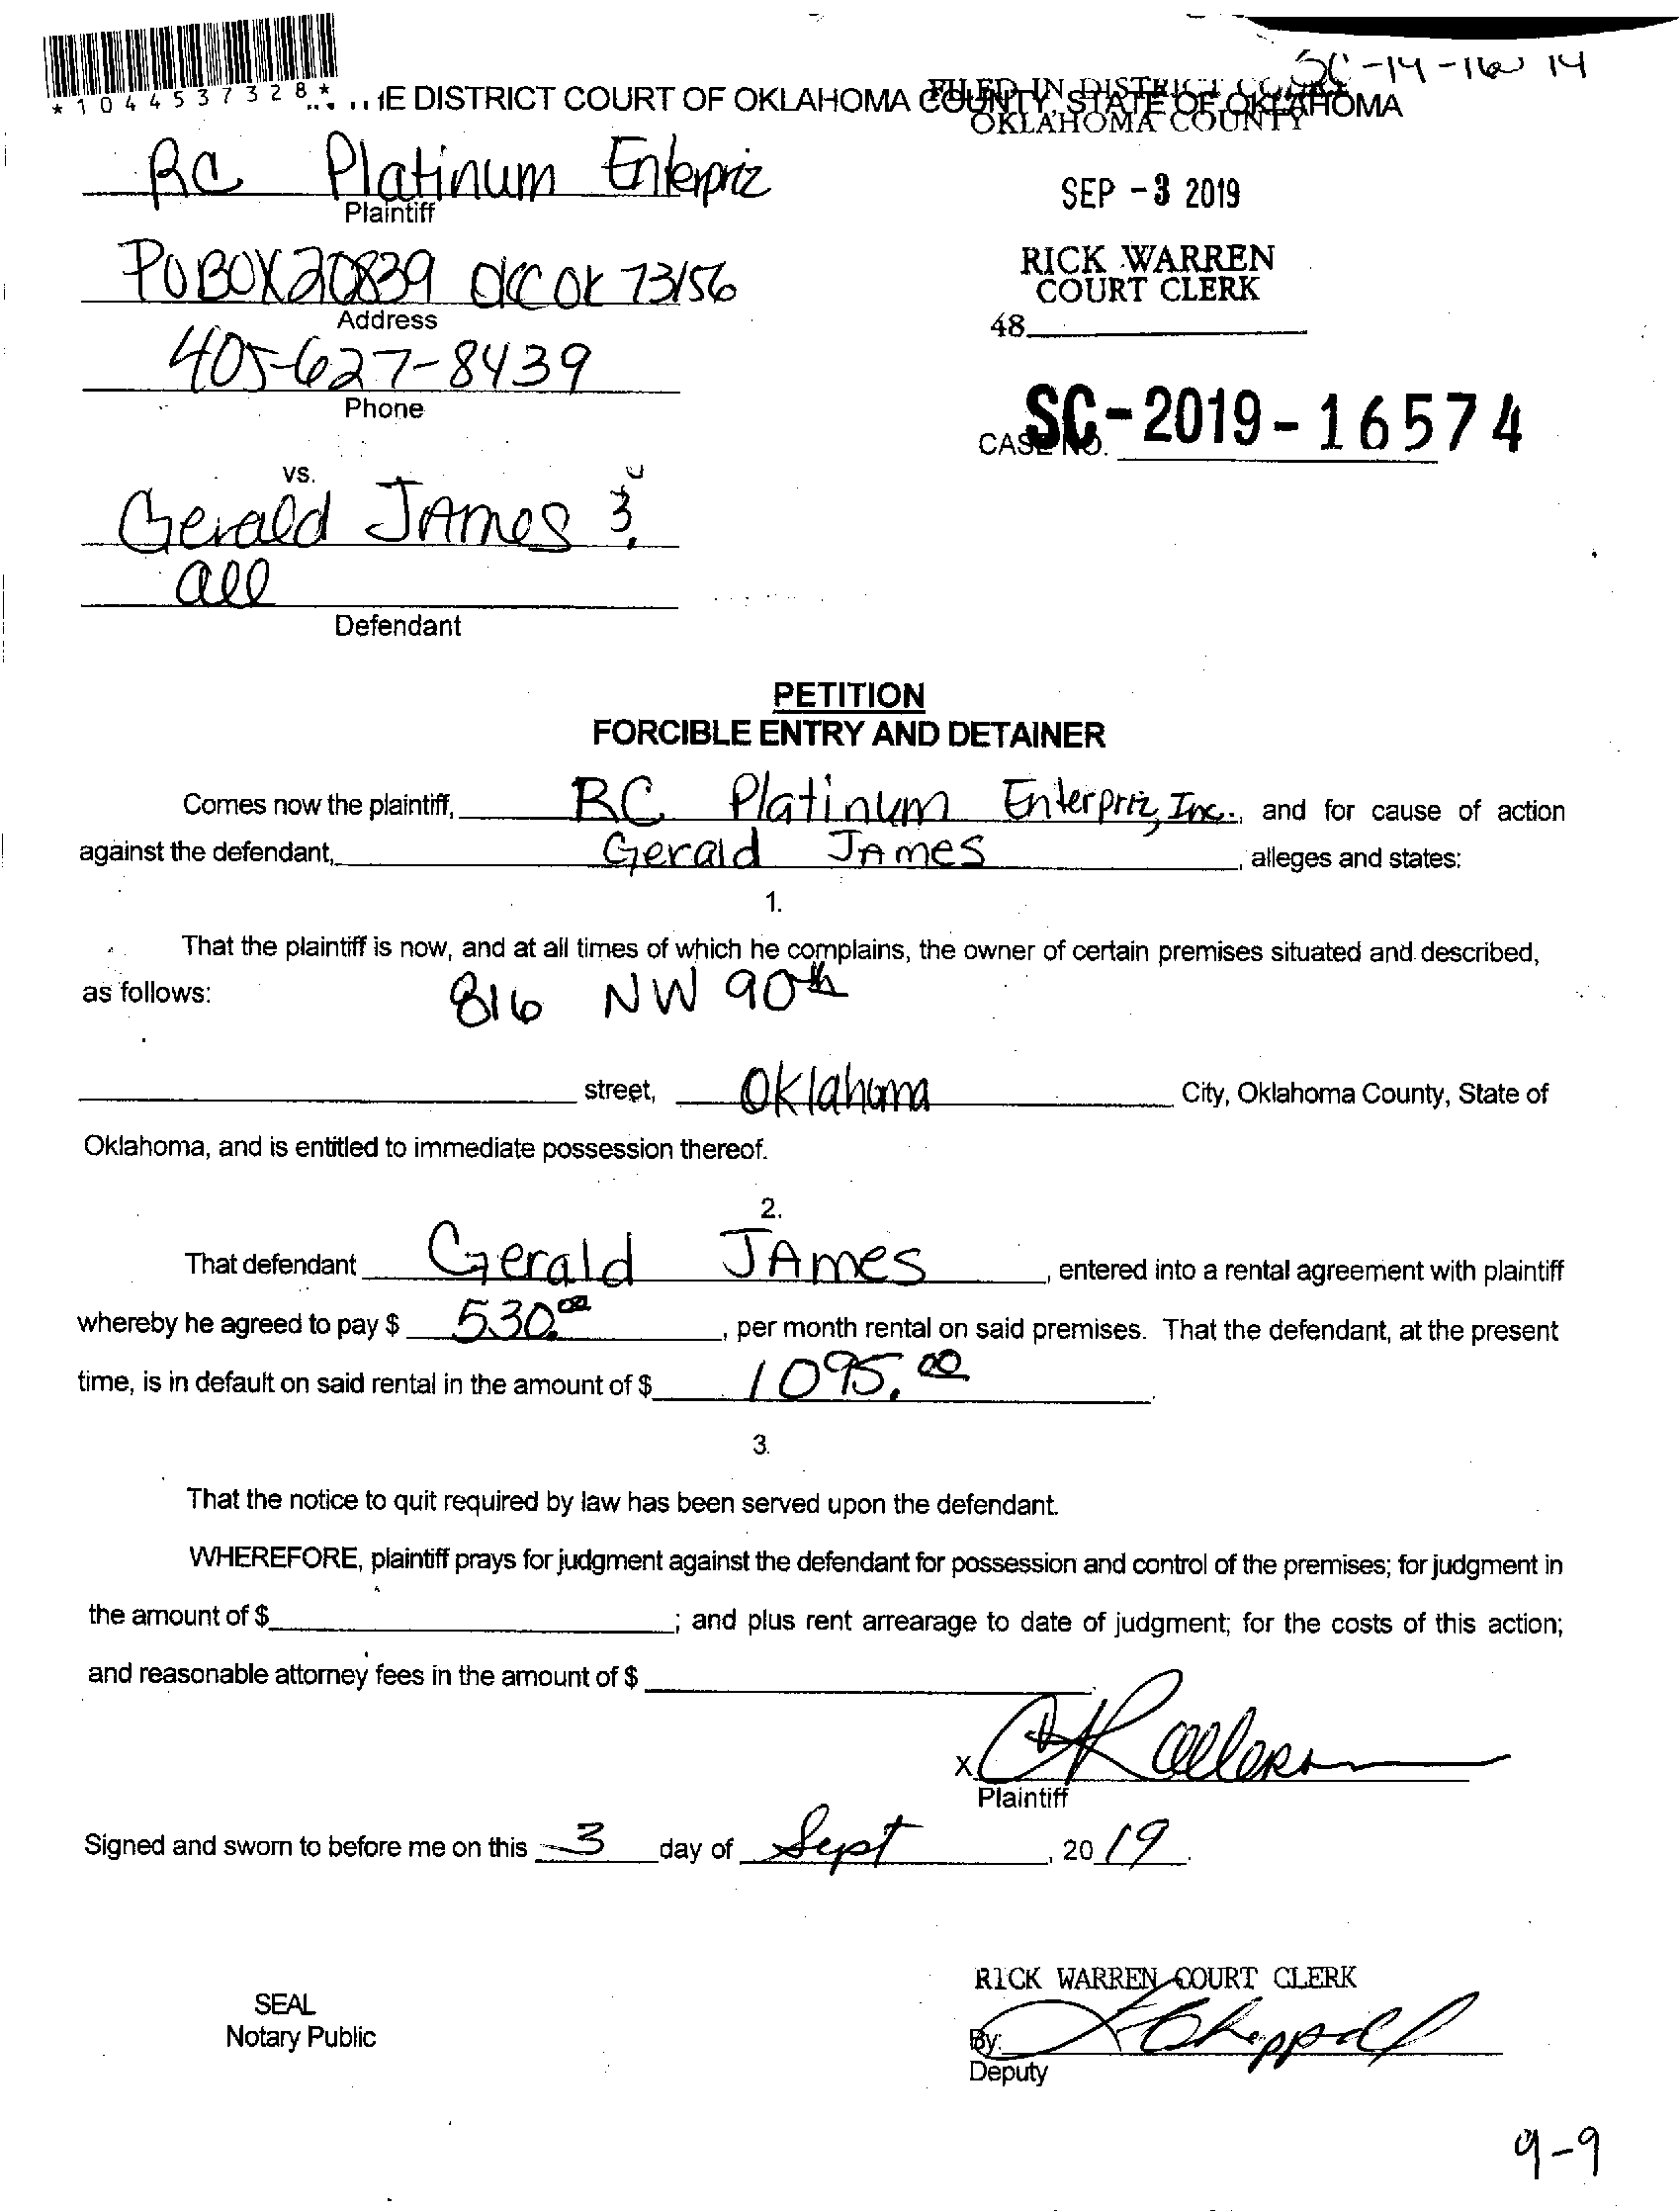 SC-14-16 14
*1044537328*
HE DISTRICT COURT OF OKLAHOMA COUNTY, STATE OF OKLAHOMA
FILED IN DISTRICT COURT
OKLAHOMA COUNTY
RC Platinum Enterpriz
Plaintiff
SEP -3 2019
PO BOX 20839 OKC OK 73156
Address
RICK WARREN
COURT CLERK
48
405-627-8439
Phone
CASE NO. SC-2019-16574
vs.
Gerald JAmes &
all
Defendant
PETITION
FORCIBLE ENTRY AND DETAINER
Comes now the plaintiff, RC Platinum Enterpriz, Inc., and for cause of action
against the defendant, Gerald JAmes, alleges and states:
1.
That the plaintiff is now, and at all times of which he complains, the owner of certain premises situated and described,
as follows: 816 NW 90th
street, Oklahoma City, Oklahoma County, State of
Oklahoma, and is entitled to immediate possession thereof.
2.
That defendant Gerald JAmes, entered into a rental agreement with plaintiff
whereby he agreed to pay $ 530.00, per month rental on said premises. That the defendant, at the present
time, is in default on said rental in the amount of $ 1095.00.
3.
That the notice to quit required by law has been served upon the defendant.
WHEREFORE, plaintiff prays for judgment against the defendant for possession and control of the premises; for judgment in
the amount of $ ; and plus rent arrearage to date of judgment; for the costs of this action;
and reasonable attorney fees in the amount of $ .
X
Plaintiff
Signed and sworn to before me on this 3 day of Sept, 2019.
RICK WARREN COURT CLERK
SEAL
Notary Public
By:
Deputy
9-9